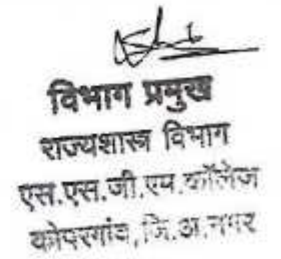 विभाग प्रमुख
राज्यशास्त्र विभाग
एस.एस.जी.एम.कॉलेज
कोपरगांव,जि.अ.नगर